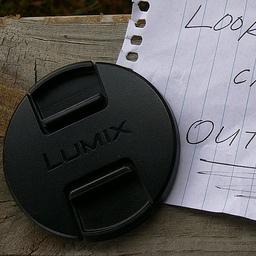 LUMIX
LOOK
OUT